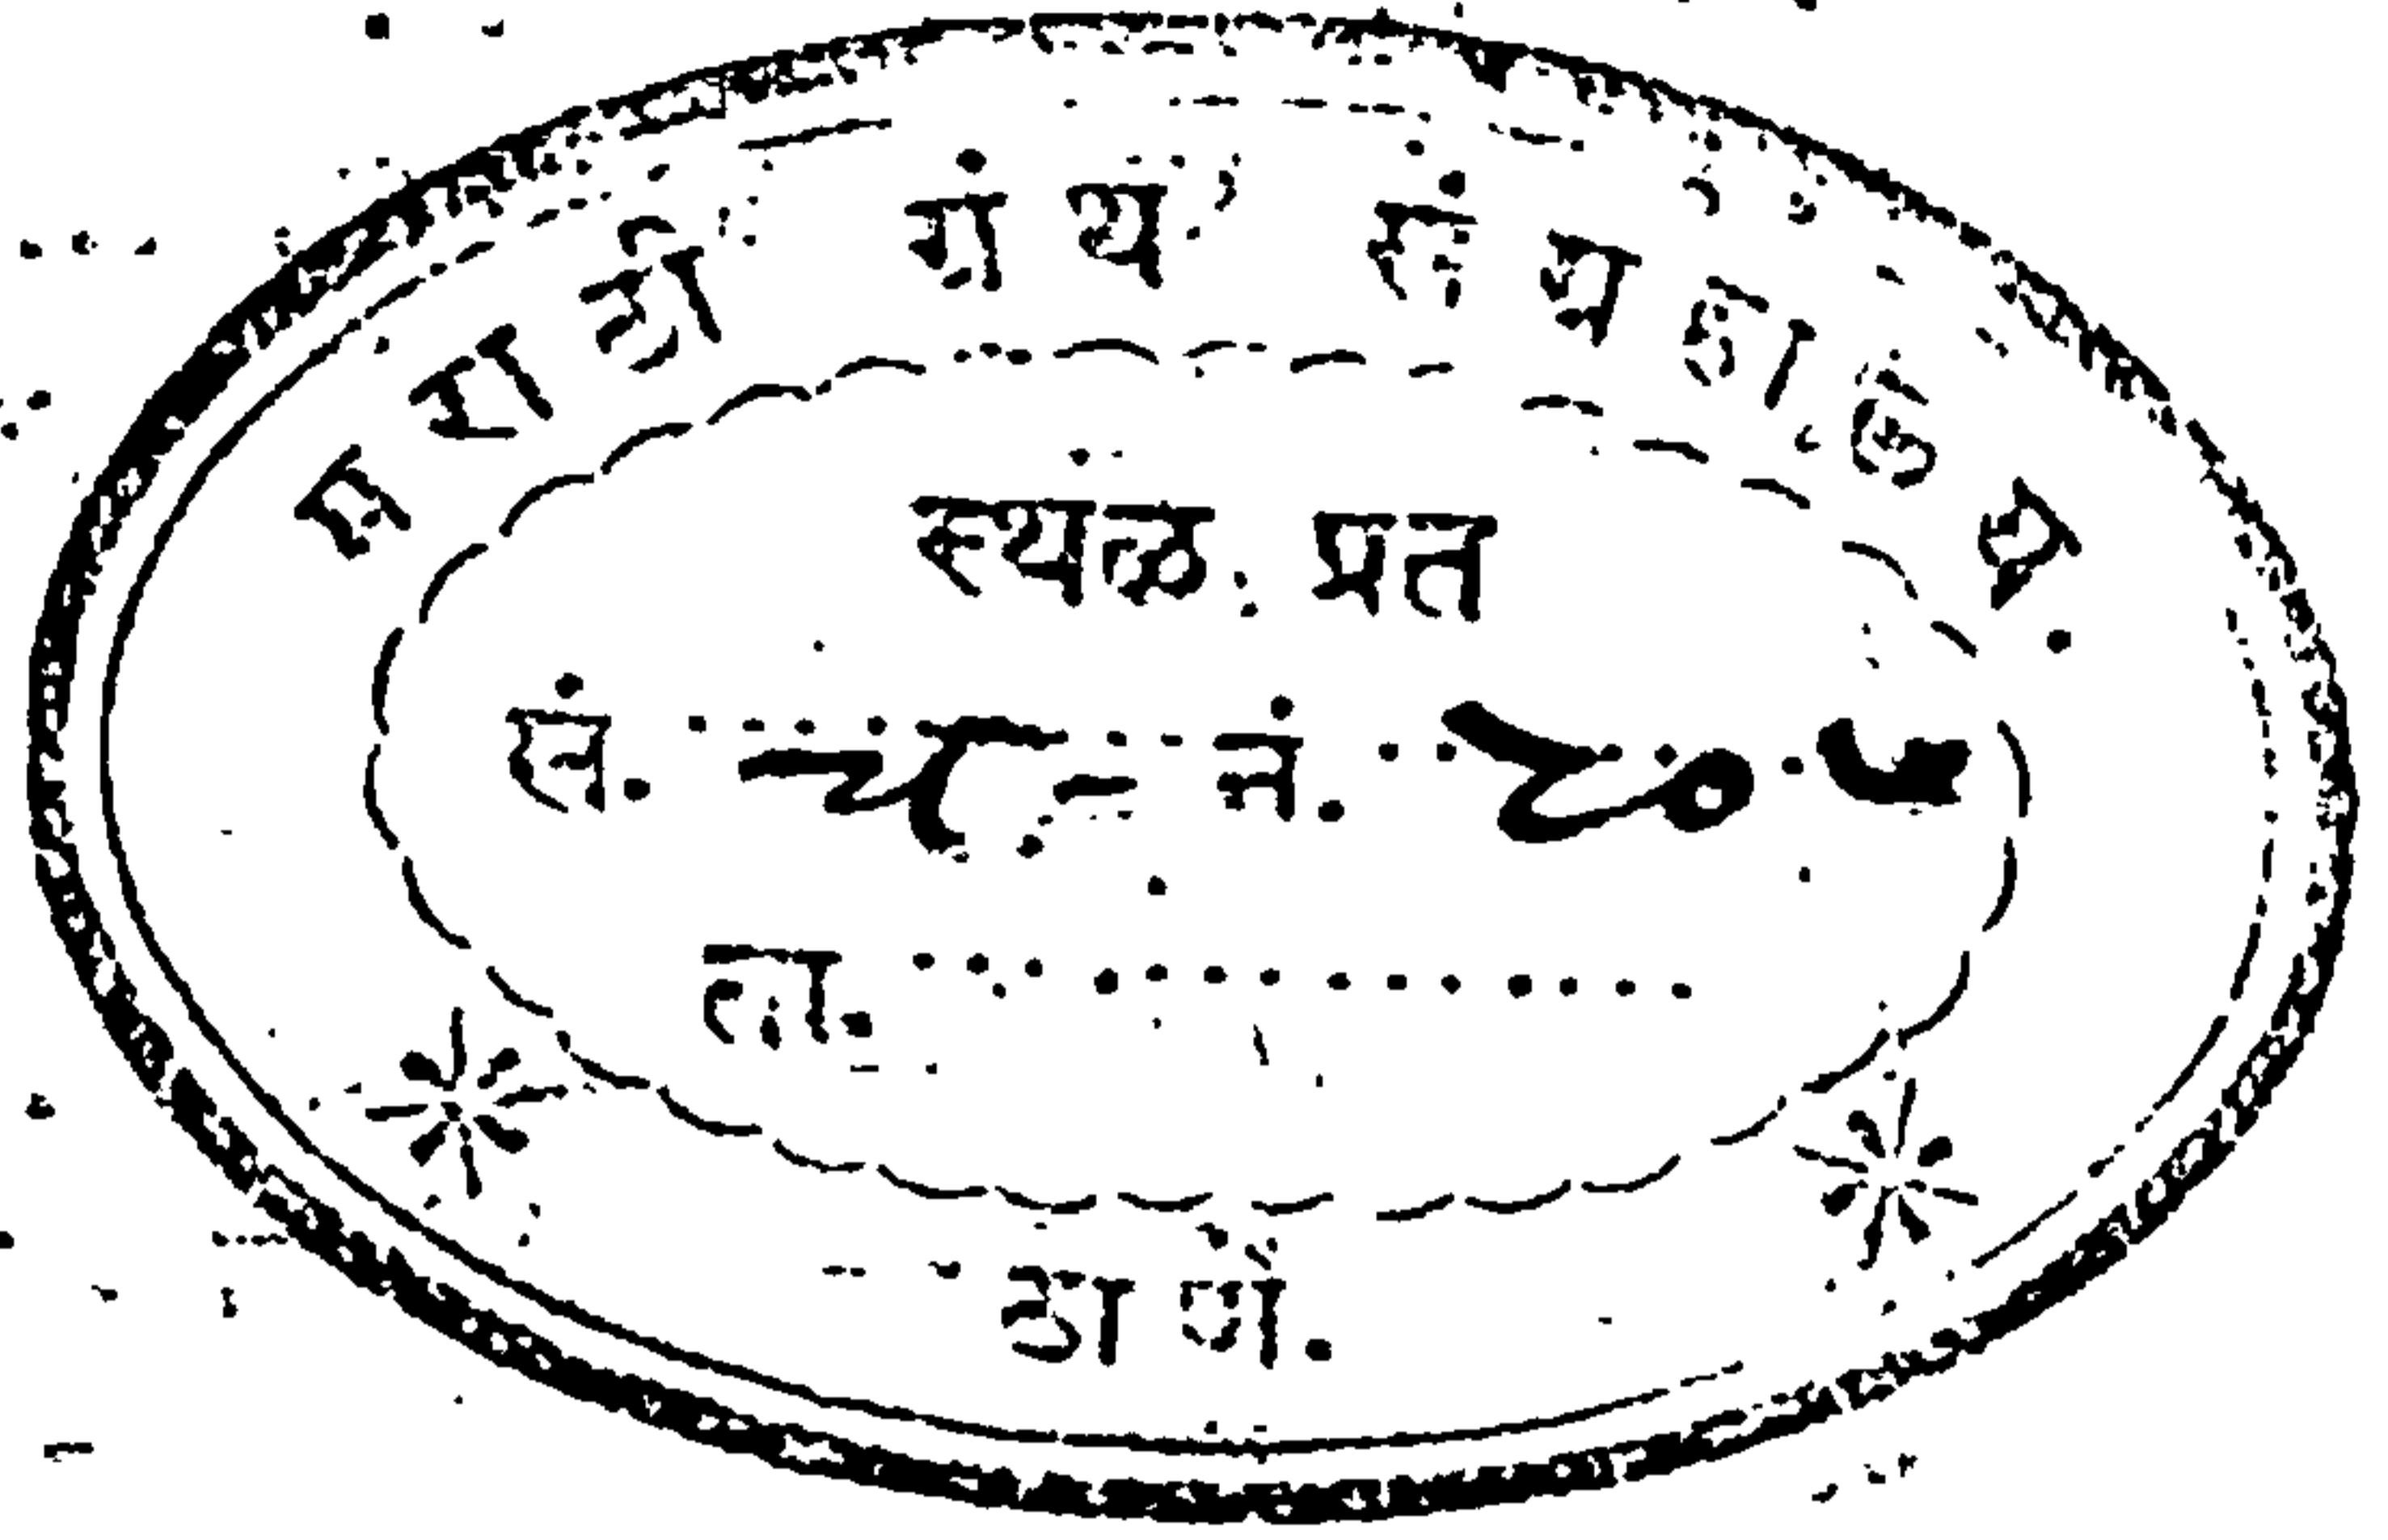 मराठी ग्रंथ संग्रहालय.
स्थळ प्रत
सं. नं.
ता.
ठाणें.